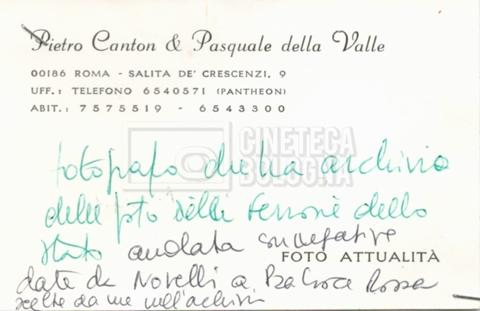 Pietro Canton & Pasquale della Valle
00186 ROMA - SALITA DE' CRESCENZI, 9
UFF.: TELEFONO 6540571 (PANTHEON)
ABIT.: 7575519 - 6543300
CINETECA
BOLOGNA
fotografo che ha archivio
delle foto delle ferrovie dello
stato andata su negative
FOTO ATTUALITÀ
date da Novelli a Ba Croce Rossa
scelte da me nell'archivi